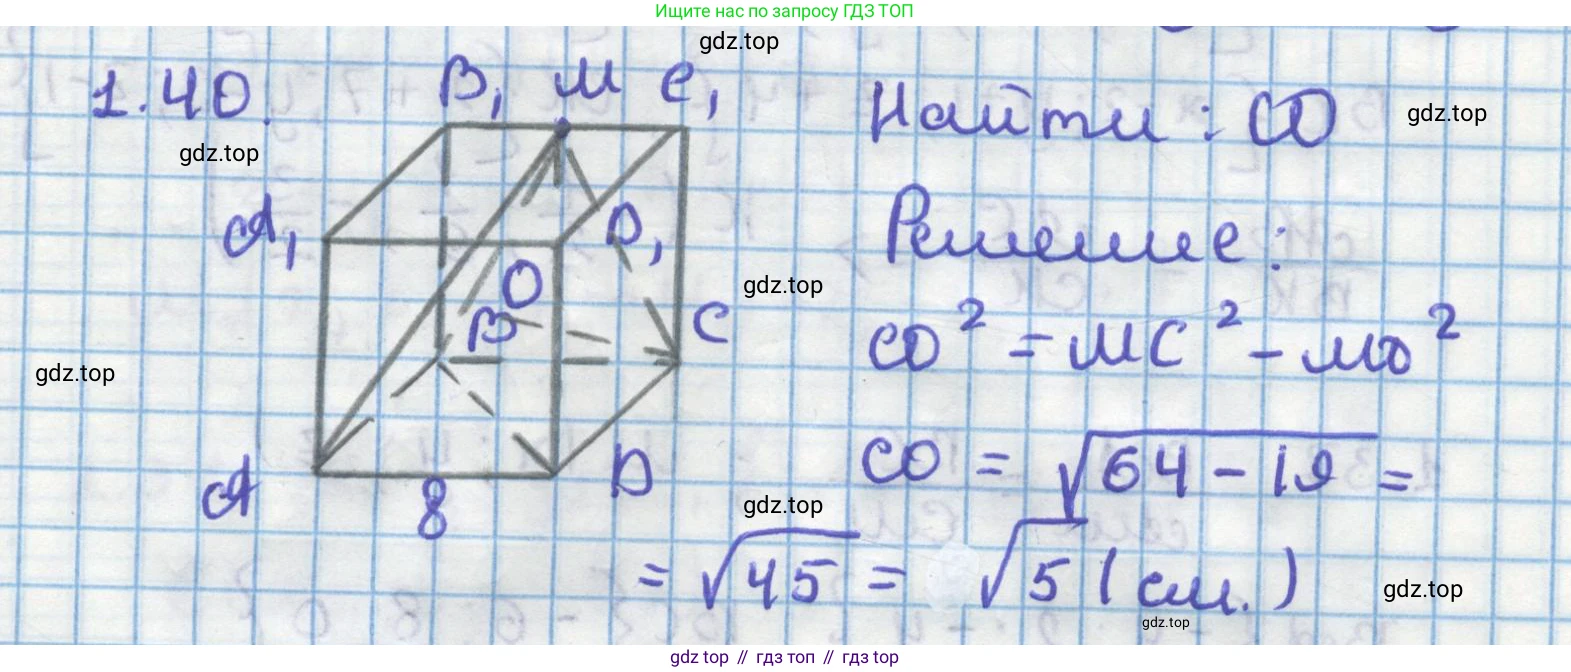 Ищите нас по запросу ГДЗ ТОП
gdz.top
1.40.
B₁ M C₁
Найти: CO
gdz.top
gdz.top
A₁
D₁
Решение:
O
gdz.top
B
C
CO² = MC² - MO²
gdz.top
CO = √64 - 19 =
A
8
D
gdz.top
= √45 = √5 (см.)
gdz.top
gdz.top
gdz top // гдз топ // гдз top